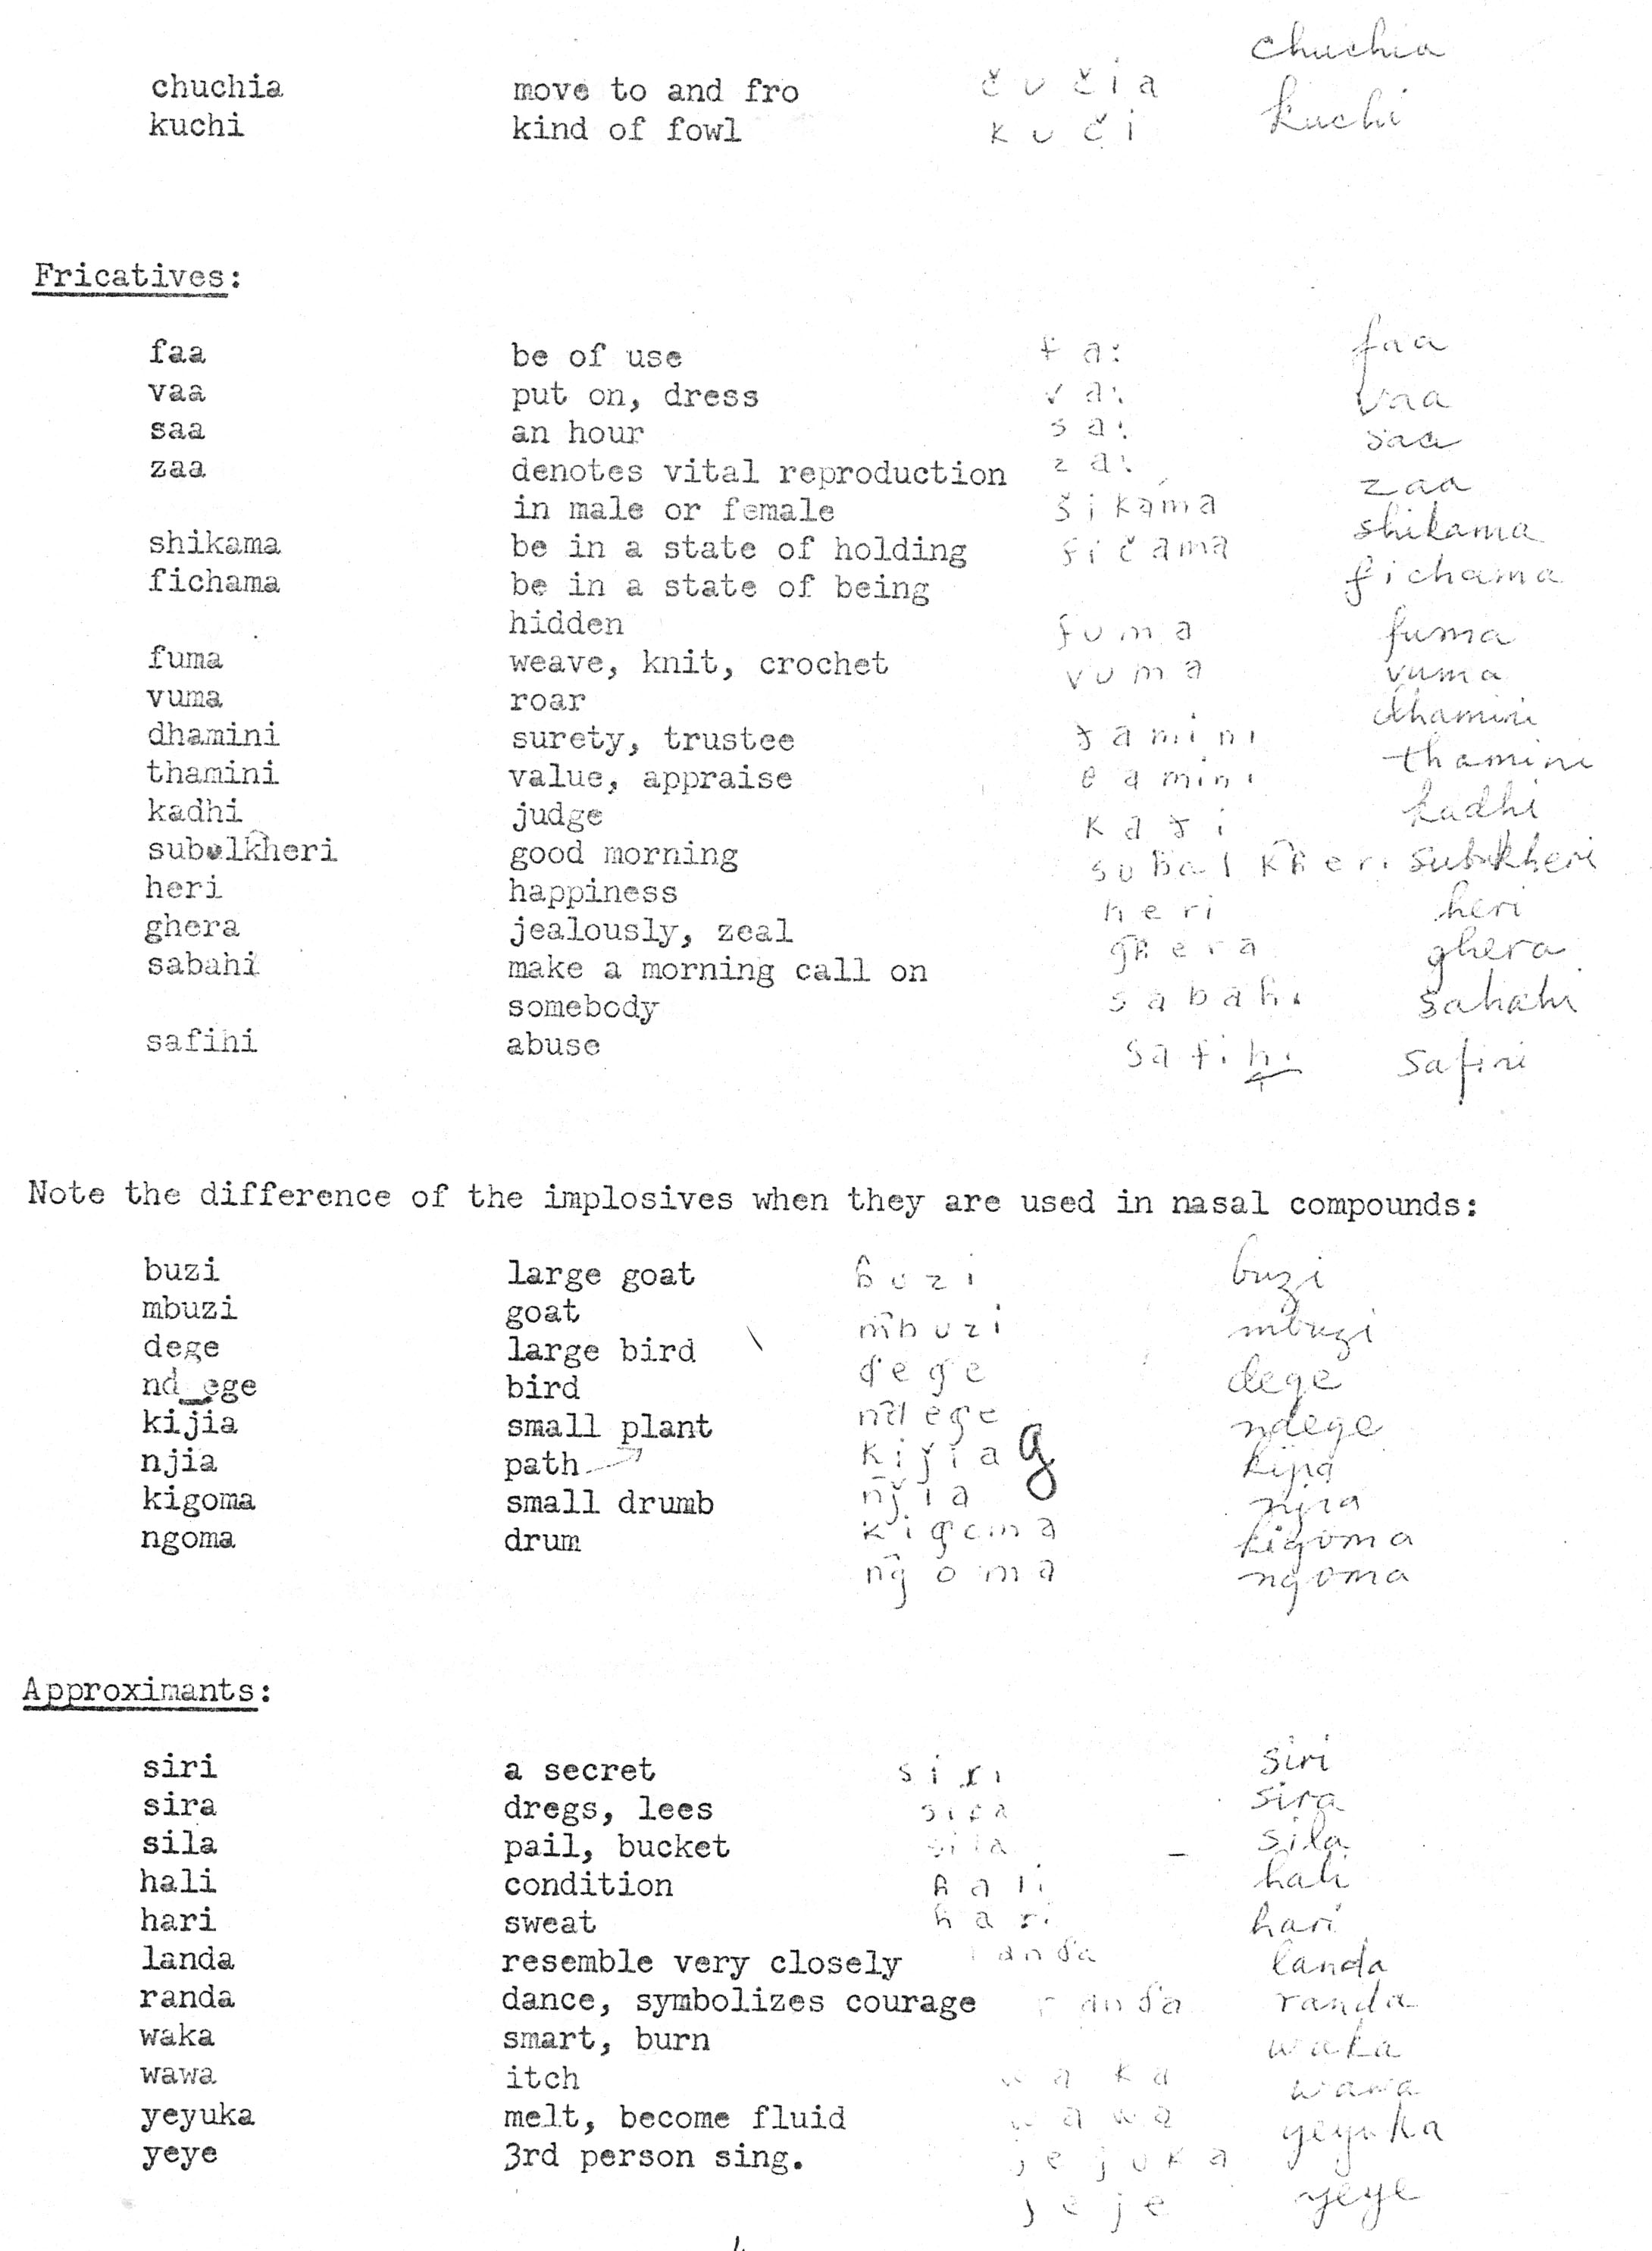 chuchia
chuchia move to and fro č u č i a
kuchi kind of fowl k u č i kuchi
Fricatives:
faa be of use f a: faa
vaa put on, dress v a: vaa
saa an hour s a: saa
zaa denotes vital reproduction z a: zaa
in male or female š i k a m a
shikama be in a state of holding f i č a m a shikama
fichama be in a state of being fichama
hidden f u m a fuma
fuma weave, knit, crochet v u m a vuma
vuma roar dhamini
dhamini surety, trustee a m i n i thamini
thamini value, appraise a m i n i
kadhi judge kadhi
subalkheri good morning
heri happiness h e r i heri
ghera jealously, zeal ghera
sabahi make a morning call on
somebody s a b a h i sabahi
safihi abuse s a f i h i
Note the difference of the implosives when they are used in nasal compounds:
buzi large goat ɓ u z i buzi
mbuzi goat m͡b u z i mbuzi
dege large bird ɗ e ɠ e dege
nd_ege bird n͡d e ɠ e ndege
kijia small plant k i j i a g kijia
njia path njia
kigoma small drumb k i ɠ o m a kigoma
ngoma drum n͡g o m a ngoma
Approximants:
siri a secret s i r i siri
sira dregs, lees s i r a sira
sila pail, bucket s i l a sila
hali condition h a l i hali
hari sweat h a r i hari
landa resemble very closely landa
randa dance, symbolizes courage randa
waka smart, burn waka
wawa itch w a k a wawa
yeyuka melt, become fluid w a w a yeyuka
yeye 3rd person sing. j e j u k a
j e j e yeye
4